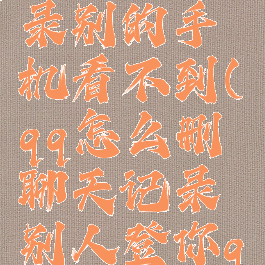 录别的手
机看不到(
qq怎么删
聊天记录
别人登你q